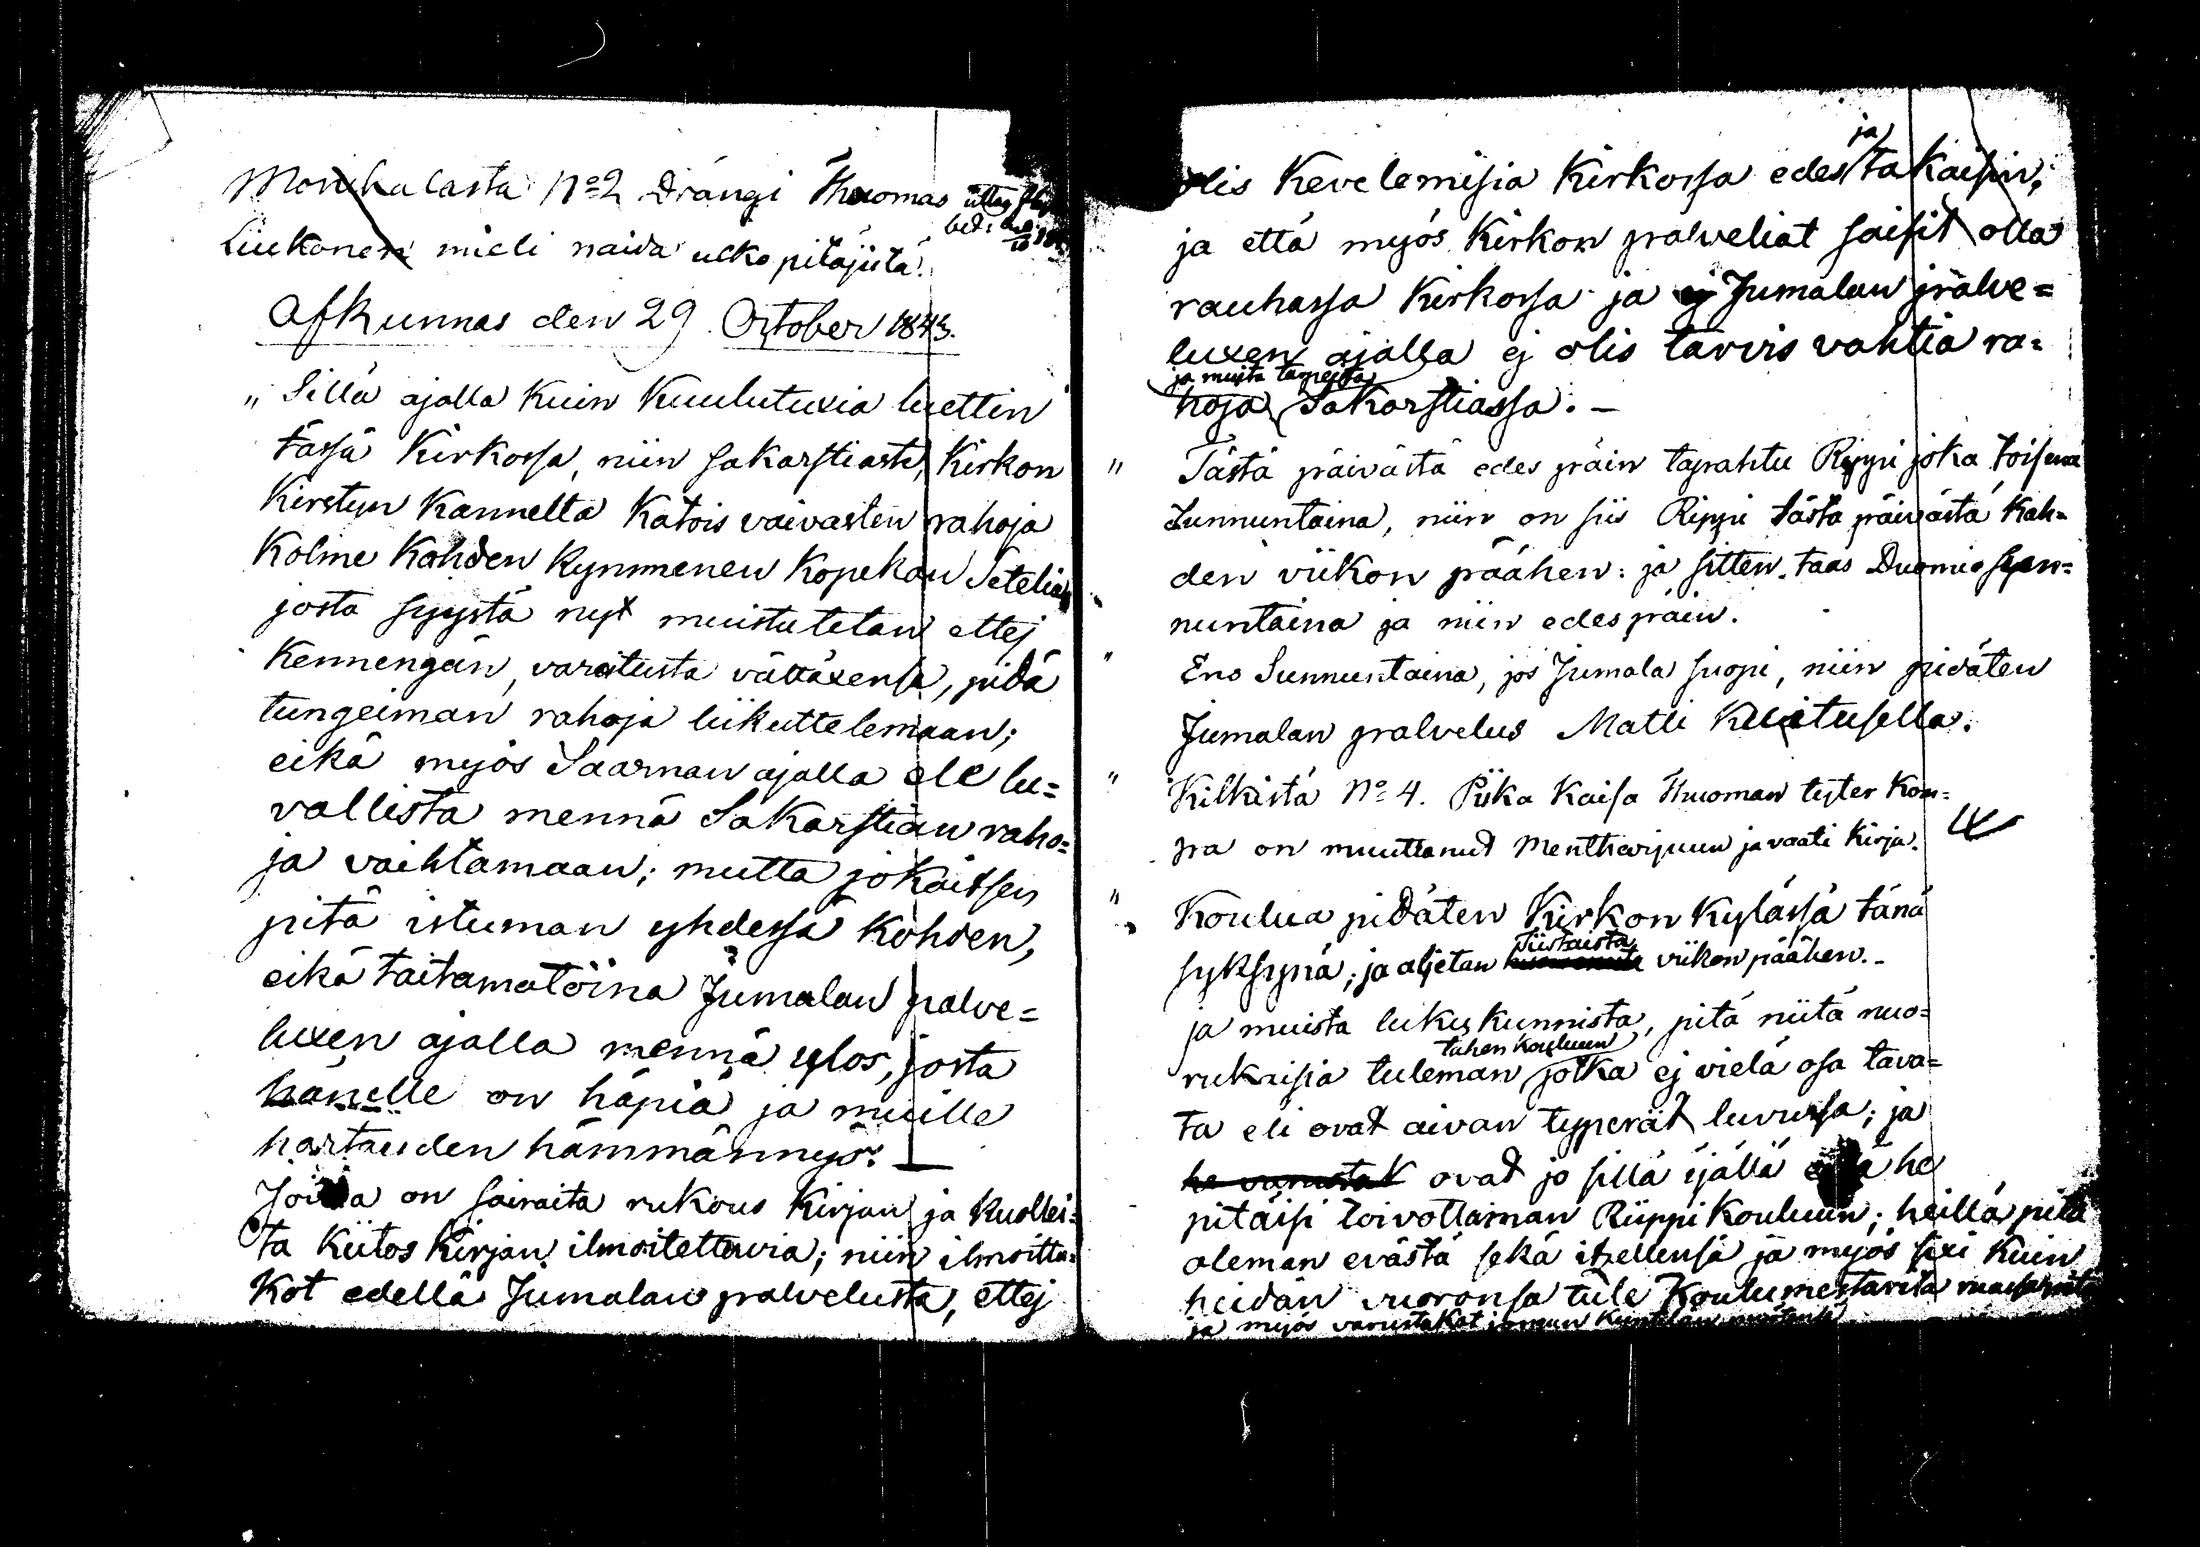 Monkalasta N:o 2 Drängi Thuomas
Liukonen mieli naida ulko pitäjistä.
Afkunnas den 29 October 1843.
" Sillä ajalla kuin Kuulutuxia luettin
tässä Kirkossa, niin sakarstiasta, Kirkon
Kirstun Kannelta katois vaivasten rahoja
Kolme Kahden Kymmenen Kopekan Setelia
josta syystä nyt muistutetan ettej
Kennengän, varoitusta välttäxensä, pidä
tungeiman rahoja liikuttelemaan;
eikä myös Saarnan ajalla ole lu=
vallista mennä Sakarstian raho=
ja vaihtamaan; mutta jokaitsen
pitä istuman yhdessä kohden,
eikä taitamatoina Jumalan palve=
luxen ajalla mennä ulos, josta
hänelle on häpiä ja muille
hartauden hämmännys. —
Joilla on sairaita rukous Kirjan ja Kuollei=
ta Kiitos Kirjan ilmoitettavia; niin ilmoitta=
kot edellä Jumalan palvelusta, ettej
olis Kevelemisia Kirkossa edes ja takaisin;
ja että myös Kirkon palveliat saisit olla
rauhassa Kirkossa ja ej Jumalan palve=
luxen ajalla ej olis tarvis vahtia ra=
ja muita tapeita
hoja Sakarstiassa. —
" Tästä päivästä edes päin tapahtu Rippi joka toisena
Sunnuntaina, niin on siis Rippi tästä päivästä kah=
den viikon päähen: ja sitten taas Duomio sun=
nuntaina ja niin edespäin.
" Ens Sunnuntaina, jos Jumala suopi, niin pidäten
Jumalan palvelus Matti Kuitusella.
" Kilkistä N:o 4. Piika Kaisa Thuoman tytter Kom=
pa on muuttanut Mentharjuun ja vaati kirja.
" Koulua pidäten Kirkon Kylässä tänä
Tiistaista
syksynä; ja aljetan viikon päähen. -
ja muista lukukunnista, pitä niitä nuo=
tähen Kouluun
rukaisia tuleman jotka ej vielä osa tava=
ta eli ovat aivan typerät luvussa; ja
he varustat ovat jo sillä ijällä että he
pitäisi toivottaman Rippi Kouluun; heillä pitä
oleman evästä sekä itzellensä ja myös sixi kuin
heidän vuoronsa tule Koulumestarita
ja myös varustakot